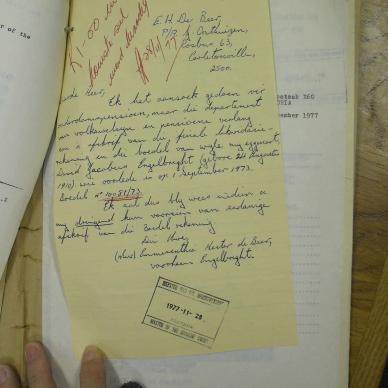 er of the
R1-00 
E. H. De Beer,
P/a J. Oosthuizen,
Posbus 63,
Carletonville,
2500.
Geagte Heer,
Ek het aansoek gedoen vir
ouderdomspensioen, maar die departement
van volkswelsyn en pensioene verlang
'n afskrif van die finale likwidasie-
rekening in die boedel van wyle my eggenoot,
David Jacobus Engelbreght (gebore 24 Augustus
1910) wie oorlede is op 1 September 1973.
Boedel no 10051/73.
Ek sal dus bly wees indien u
my dringend kan voorsien van sodanige
afskrif van die boedel rekening
Die Uwe,
(Mev) Emmerentha Hester de Beer,
voorheen Engelbreght.
1977-11-28
MASTER OF THE SUPREME COURT
260
RIA
ember 1977